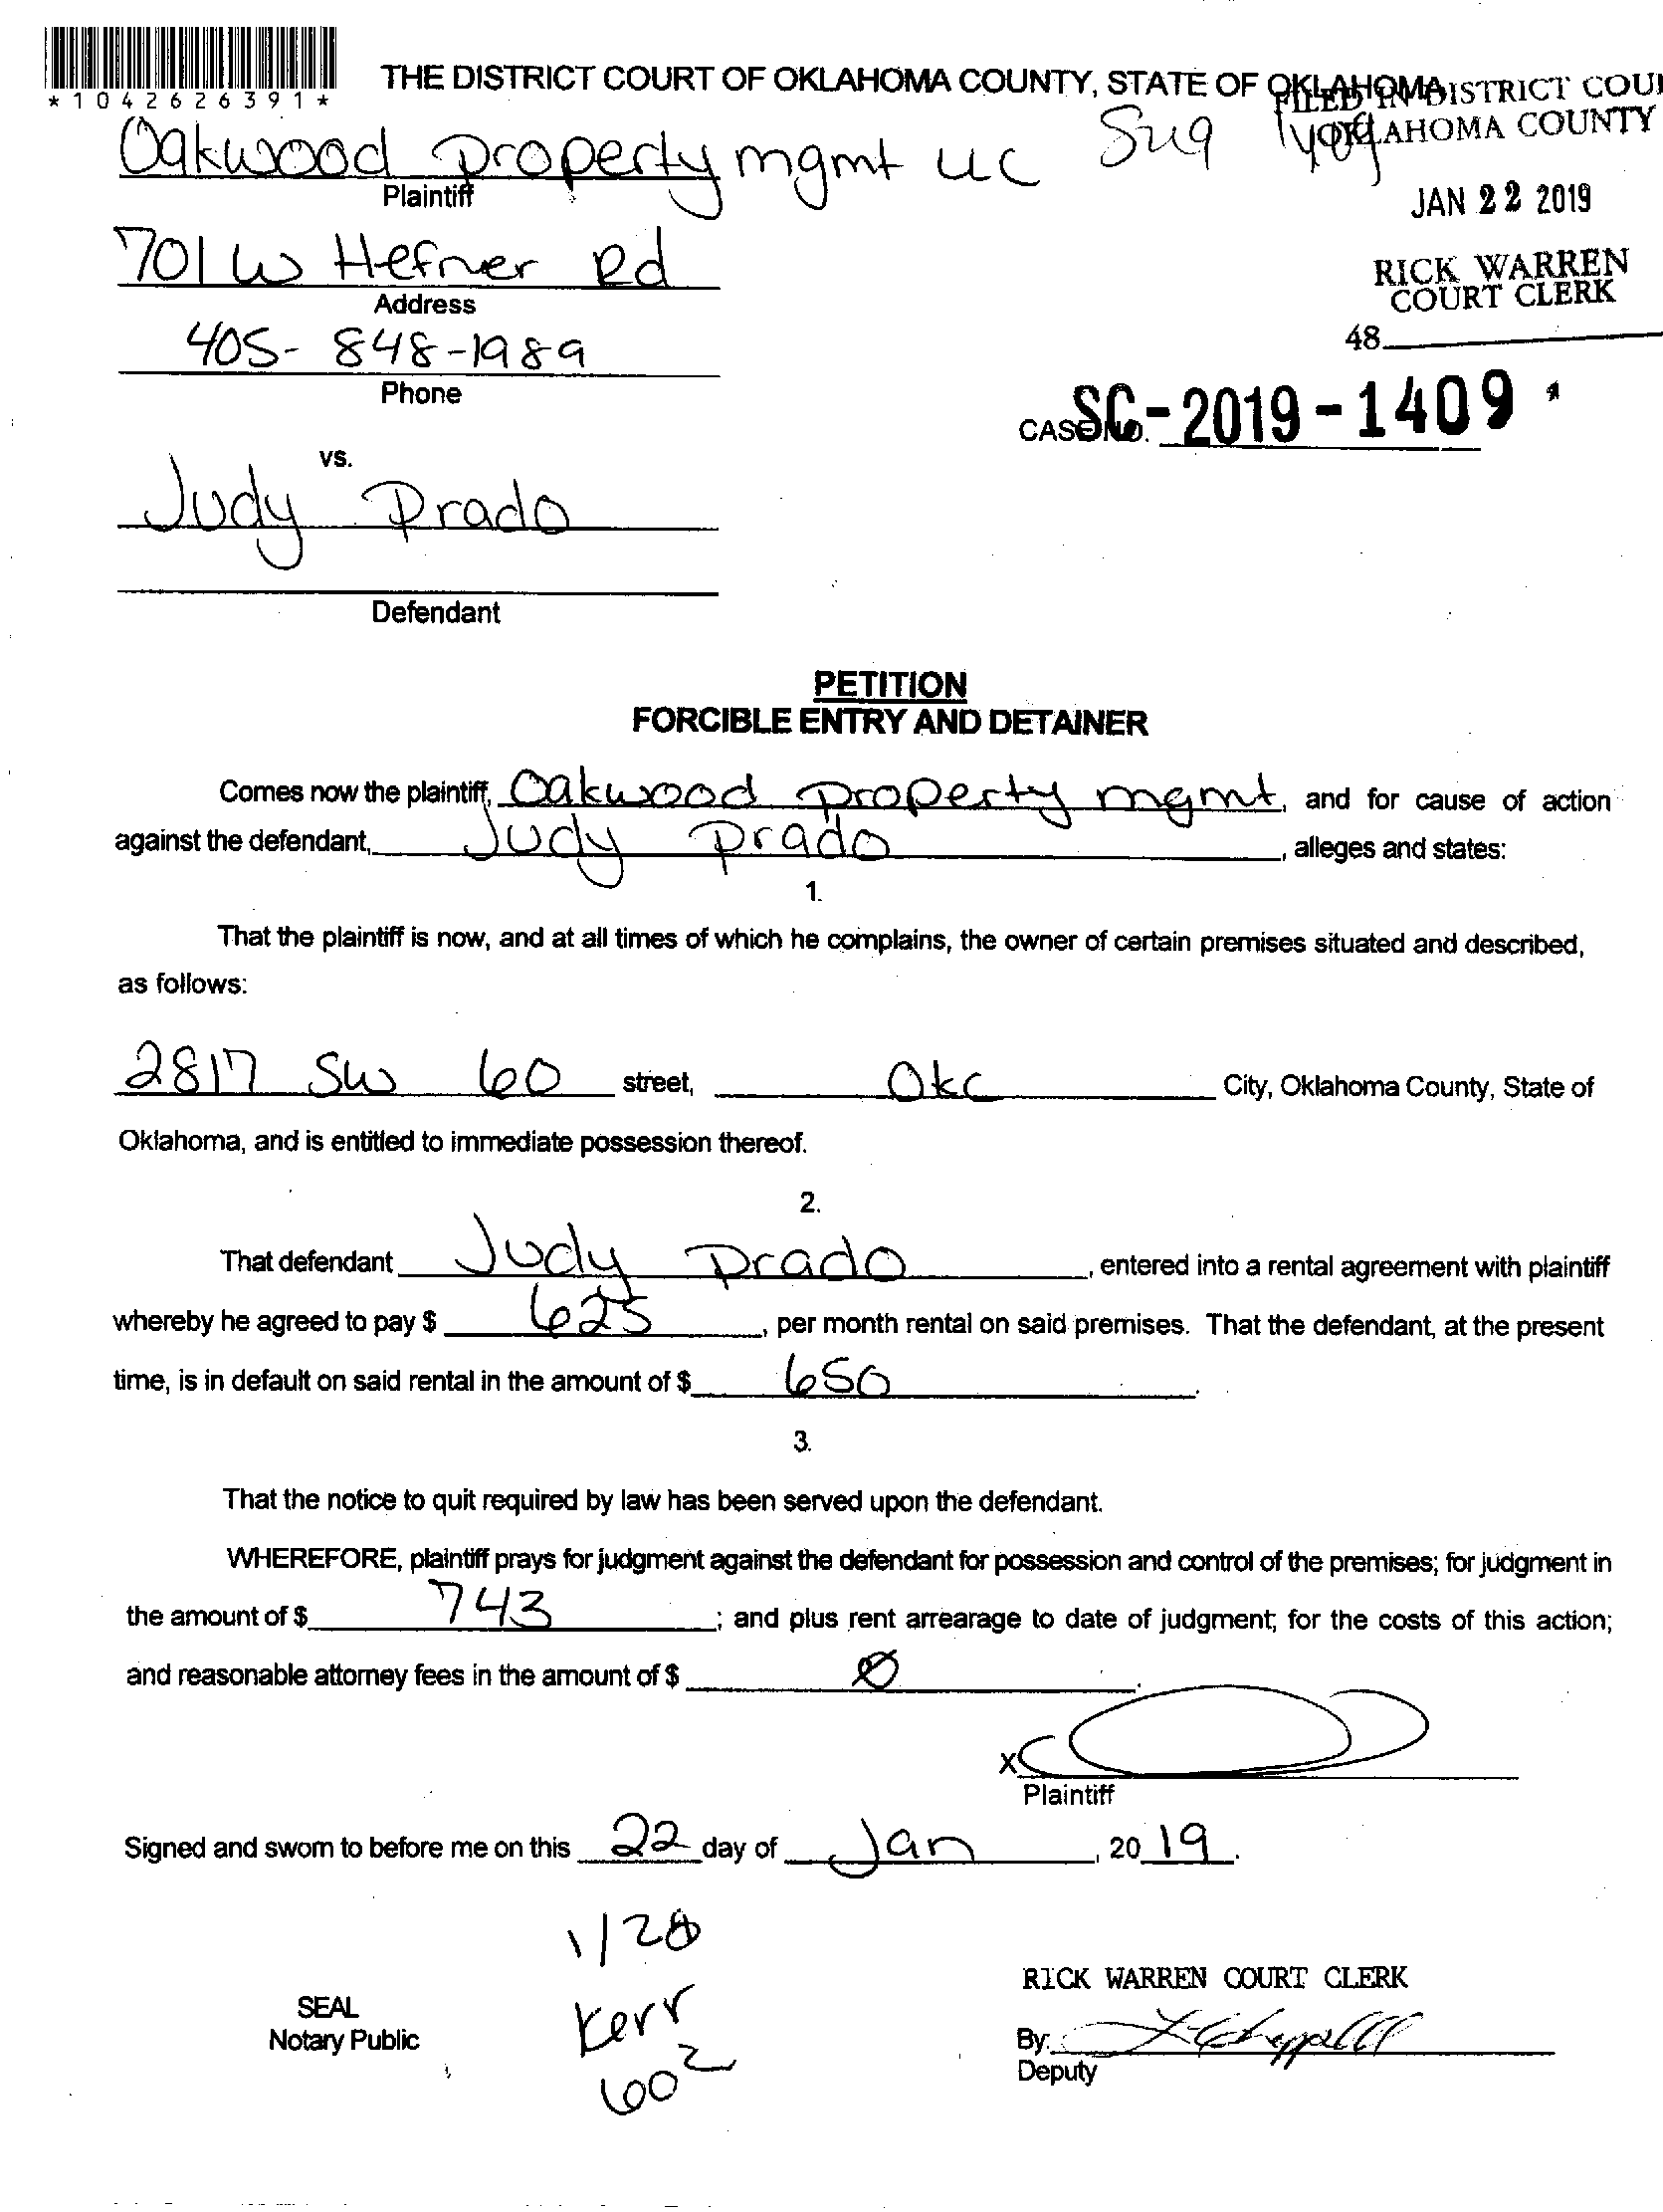 *1042626391*
THE DISTRICT COURT OF OKLAHOMA COUNTY, STATE OF OKLAHOMA
FILED IN DISTRICT COU
OKLAHOMA COUNTY
Oakwood property mgmt LLC
Plaintiff
JAN 22 2019
701 W Hefner Rd
Address
RICK WARREN
COURT CLERK
405-848-1989
Phone
48
CASE NO. SC-2019-1409
vs.
Judy Prado
Defendant
PETITION
FORCIBLE ENTRY AND DETAINER
Comes now the plaintiff, Oakwood property mgmt, and for cause of action
against the defendant, Judy prado, alleges and states:
1.
That the plaintiff is now, and at all times of which he complains, the owner of certain premises situated and described,
as follows:
2817 SW 60 street, Okc City, Oklahoma County, State of
Oklahoma, and is entitled to immediate possession thereof.
2.
That defendant Judy Prado, entered into a rental agreement with plaintiff
whereby he agreed to pay $ 625, per month rental on said premises. That the defendant, at the present
time, is in default on said rental in the amount of $ 650.
3.
That the notice to quit required by law has been served upon the defendant.
WHEREFORE, plaintiff prays for judgment against the defendant for possession and control of the premises; for judgment in
the amount of $ 743; and plus rent arrearage to date of judgment; for the costs of this action;
and reasonable attorney fees in the amount of $ 0.
X
Plaintiff
Signed and sworn to before me on this 22 day of Jan, 2019.
Kerr
602
RICK WARREN COURT CLERK
SEAL
Notary Public
By:
Deputy